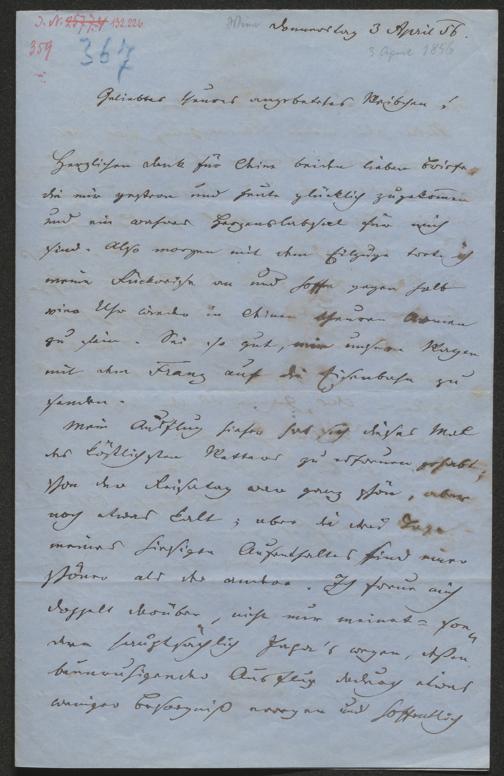 I. N. 25774 132.226
359
367
Donnerstag 3 April 56.
3 April 1856
Geliebtes theures angebetetes Weibchen!
Herzlichen Dank für Deine beiden lieben Briefe,
die mir gestern und heute glücklich zugekommen
und ein wahres Herzenslabsal für mich
sind. Also morgen mit dem Eilzuge trete ich
meine Rückreise an und hoffe gegen halb
vier Uhr wieder in Deinen theuren Armen
zu sein. Sei so gut, mir unseren Wagen
mit dem Franz auf die Eisenbahn zu
senden.
Mein Ausflug hieher hat sich dieses Mal
des köstlichsten Wetters zu erfreuen gehabt;
schon der Reisetag war ganz schön, aber
noch etwas kalt; aber die drei Tage
meines hiesigen Aufenthaltes sind einer
schöner als der andere. Ich freue mich
doppelt darüber, nicht nur meinet= son"
dern hauptsächlich Papa's wegen, dessen
beunruhigender Ausflug dadurch etwas
weniger Besorgniß erregen und hoffentlich